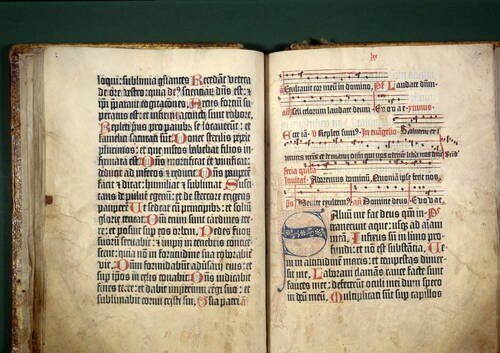 loqui: sublimia gl̄antes Recedant vetera
de ore vestro: quia de9 scientiaꝝ dn̄s est: et
ip̄i p̄parant̄ cogitatiōes. Arcus fortiū su
peratus est: et infirmi accincti sunt robore.
Repleti prius pro panibus se locauerūt: et
famelici saturati sūt: Donec sterilis pepit
plurimos: et que multos habebat filios in
firmata est Dn̄s mortificat et viuificat:
deducit ad inferos et reducit Dn̄s paupeȝ
facit et ditat: humiliat et subleuat Susci
tans de puluere egenū: et de stercore erigens
pauperē Ut sedeat cū principibus: et soliū
glorie teneat Dn̄i enim sunt cardines ter
re: et posuit sup eos orbem. Pedes sctōꝝ
suoꝝ seruabit: et impij in tenebris contice
scent: quia non in fortitudine sua roborabit̄
vir. Dn̄m formidabūt aduersarij eius: et
sup ip̄os in celis tonabit Dn̄s iudicabit
fines terre: et dabit imperiū regi suo: et
sublimabit cornu cristi sui. Gloria patri
lv
Exultauit cor meū in domino. Ps Laudate dn̄m
celi celorum laudate deum. Euouae. ymnus
Ecce iā. ꝟ Repleti sumꝰ. In euangelio.
feria quīta
Inuitat. Adoremus dominū. Quoniā ipse fecit nos.
Ps Venite exultemꝰ. aň Domine deus. Euouae.
Saluū me fac deus qm̄ in Ps
trauerunt aque: usqȝ ad aiam
meā. Infixus sū in limo pro
fundi: et non est substātia. Ve
ni in altitudinē maris: et tempestas dimer
sit me. Laboraui clamās rauce facte sunt
fauces mee: defecerūt oculi mei dum spero
in deū meū. Multiplicati sūt sup capillos